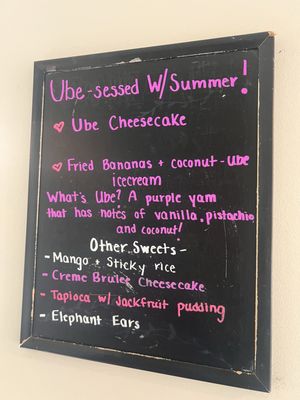 Ube-sessed W/Summer!
♥ Ube Cheesecake
♥ Fried Bananas + coconut-ube
icecream
What's Ube? A purple yam
that has notes of vanilla, pistachio
and coconut!
Other Sweets-
- Mango + Sticky rice
- Creme Brulee Cheesecake
- Tapioca w/ Jackfruit pudding
- Elephant Ears